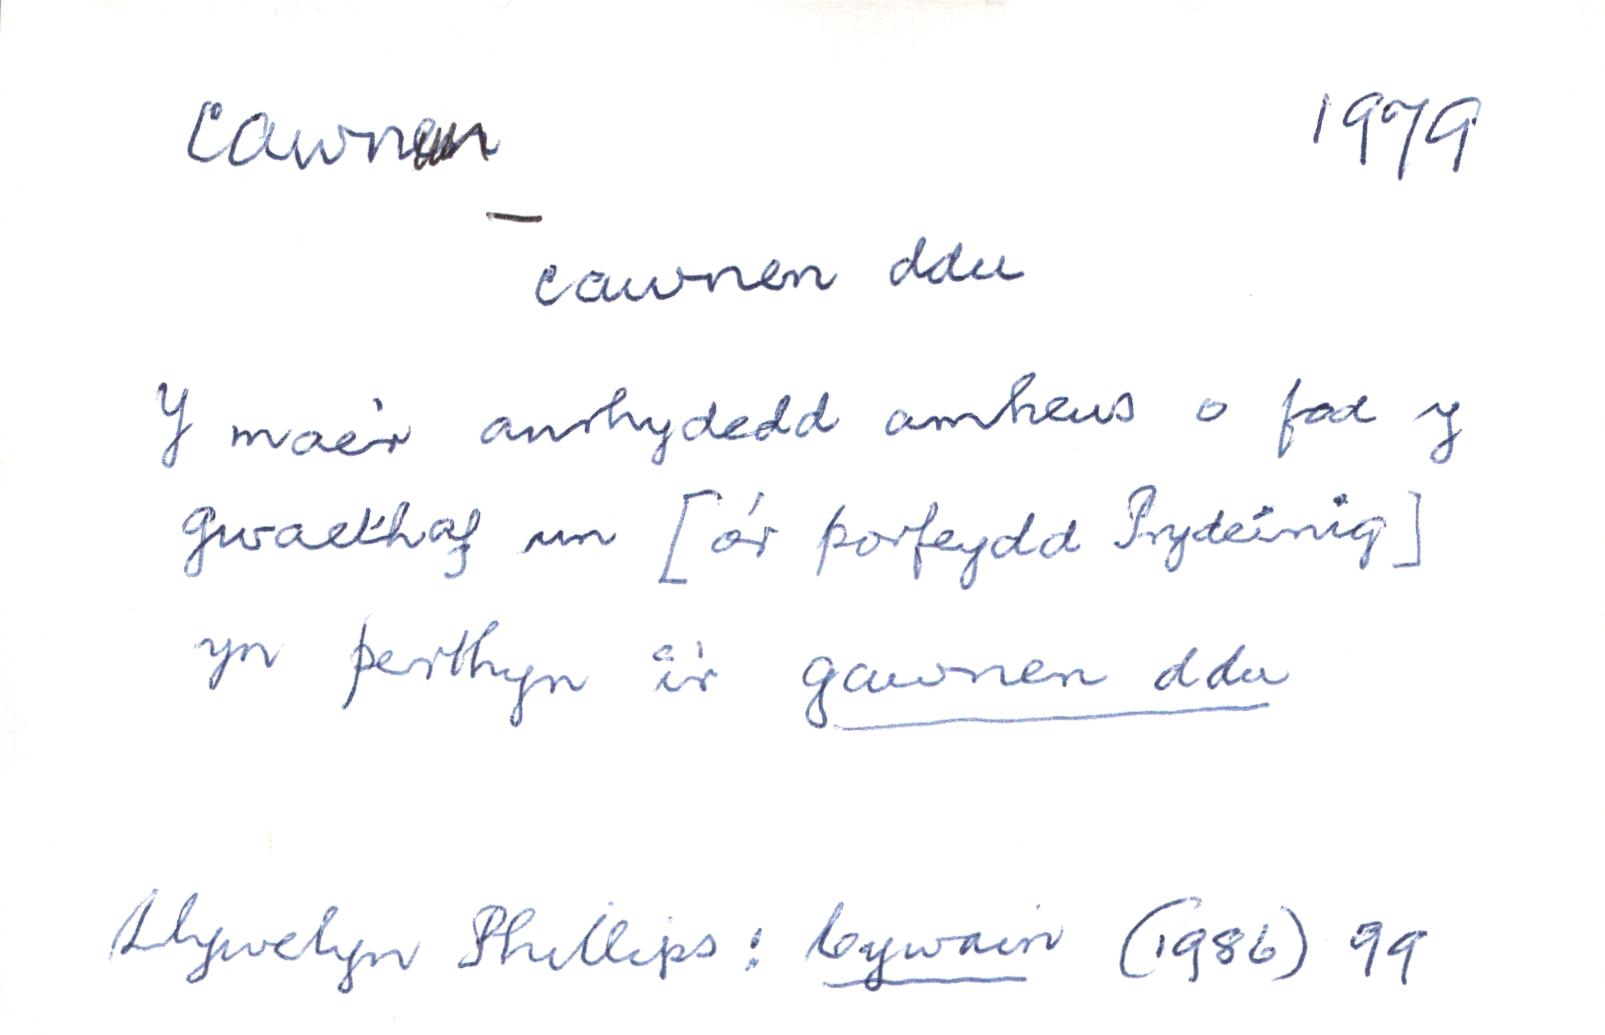 cawnen 1979
—
cawnen ddu
Y mae'r anrhydedd amheus o fod y
gwaethaf un [o'r porfeydd Prydeinig]
yn perthyn i'r gawnen ddu
Llywelyn Phillips: Cywain (1986) 99